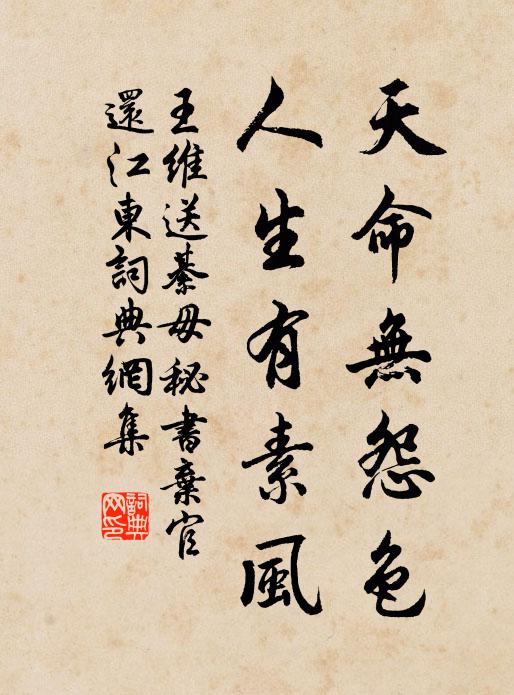 天命無怨色
人生有素風
王維送綦毋秘書棄官
還江東詞典網集
詞典
网印